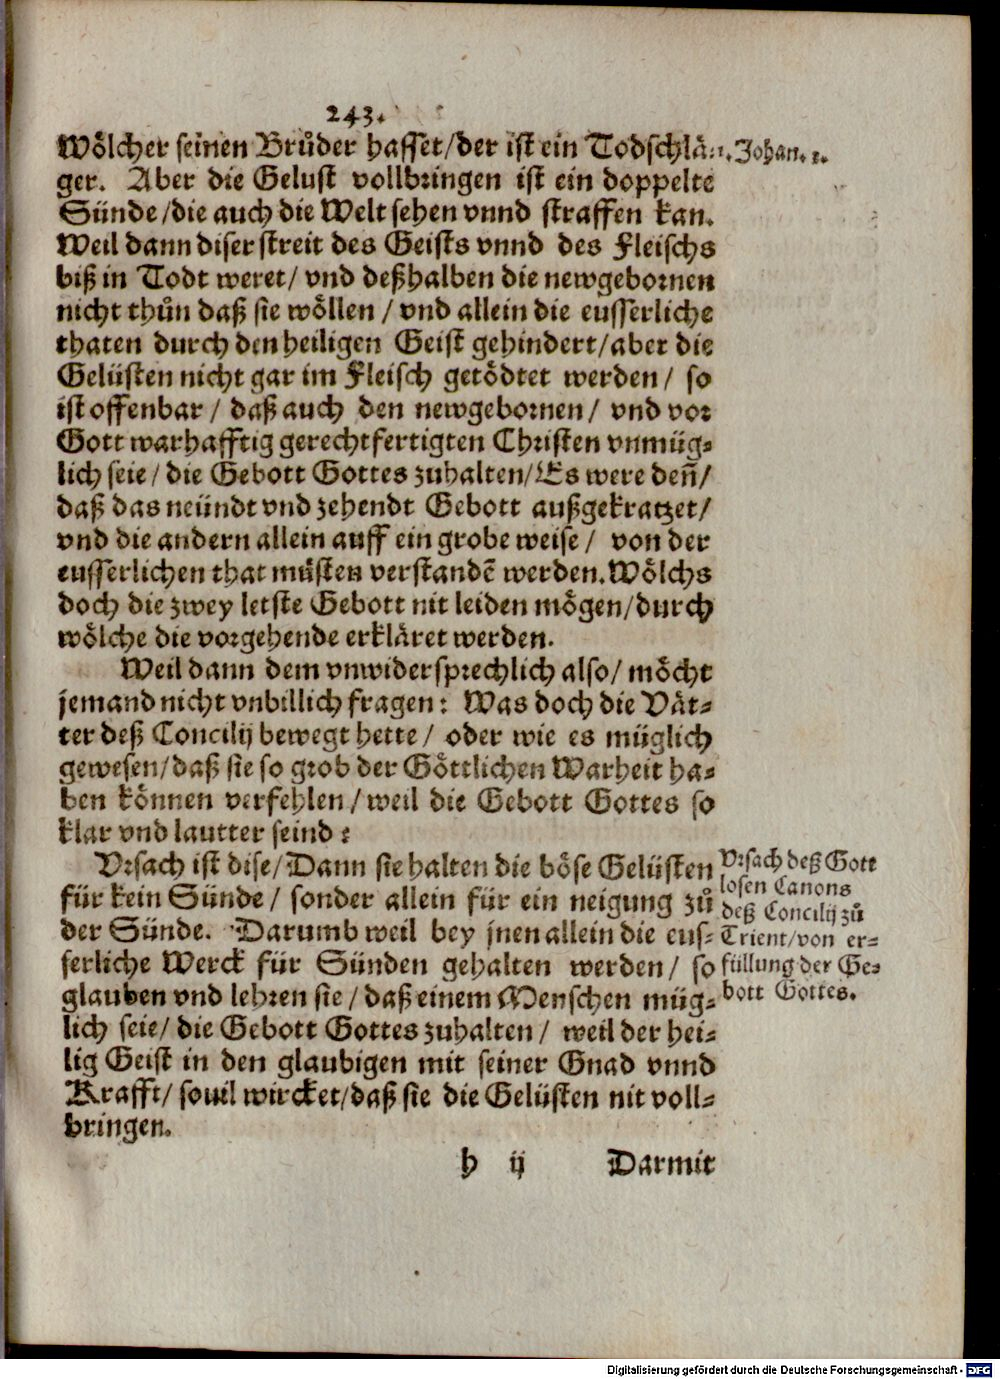 243.
Wölcher seinen Bruͦder hasset/der ist ein Todschlä-
1. Johan. 1.
ger. Aber die Gelust vollbringen ist ein doppelte
Sünde/die auch die Welt sehen vnnd straffen kan.
Weil dann diser streit des Geists vnnd des Fleischs
biß in Todt weret/ vnd deßhalben die newgebornen
nicht thuͦn daß sie wöllen / vnd allein die eusserliche
thaten durch den heiligen Geist gehindert/aber die
Gelüsten nicht gar im Fleisch getödtet werden/ so
ist offenbar / daß auch den newgebornen/ vnd vor
Gott warhafftig gerechtfertigten Christen vnmüg-
lich seie / die Gebott Gottes zuhalten/Es were deñ/
daß das neündt vnd zehendt Gebott außgekratzet/
vnd die andern allein auff ein grobe weise / von der
eusserlichen that müsten verstandẽ werden. Wölchs
doch die zwey letste Gebott nit leiden mögen/durch
wölche die vorgehende erkläret werden.
Weil dann dem vnwidersprechlich also/ möcht
jemand nicht vnbillich fragen: Was doch die Vät-
ter deß Concilij bewegt hette / oder wie es müglich
gewesen/daß sie so grob der Göttlichen Warheit ha-
ben können verfehlen/weil die Gebott Gottes so
klar vnd lautter seind:
Vrsach ist dise/Dann sie halten die böse Gelüsten
für kein Sünde / sonder allein für ein neigung zuͦ
der Sünde. Darumb weil bey jnen allein die eus-
serliche Werck für Sünden gehalten werden/ so
glauben vnd lehren sie / daß einem Menschen müg-
lich seie/ die Gebott Gottes zuhalten / weil der hei-
lig Geist in den glaubigen mit seiner Gnad vnnd
Krafft/ souil wircket/daß sie die Gelüsten nit voll-
bringen.
Vrsach deß Gott
losen Canons
deß Concilij zuͦ
Trient/von er-
füllung der Ge-
bott Gottes.
h ij Darmit
Digitalisierung gefördert durch die Deutsche Forschungsgemeinschaft - DFG